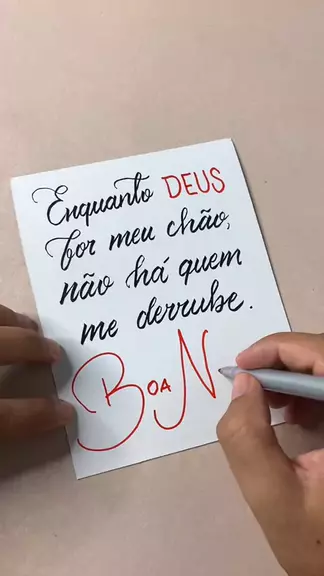 Enquanto DEUS
for meu chão,
não há quem
me derrube.
BOA N